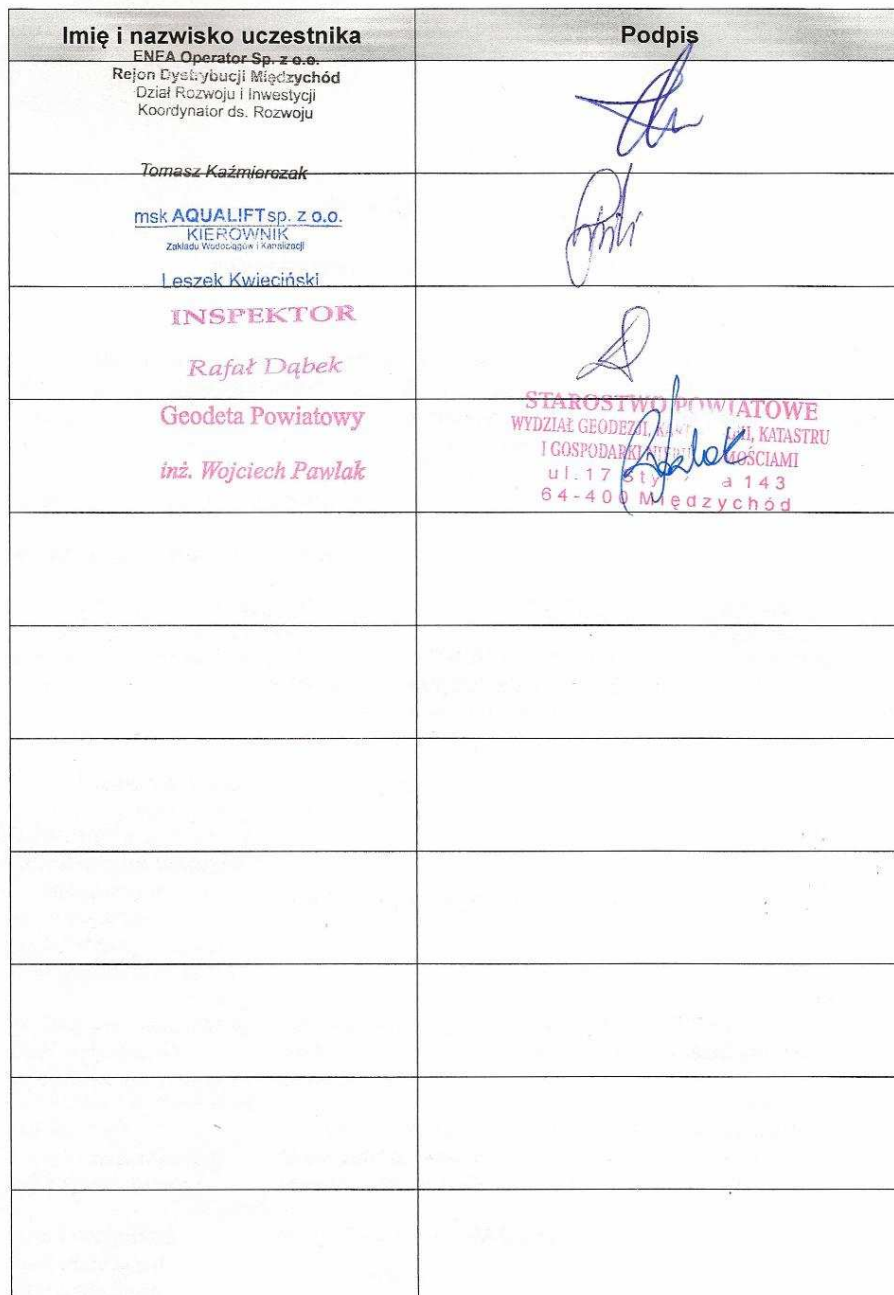 Imię i nazwisko uczestnika
Podpis
ENEA Operator Sp. z o.o.
Rejon Dystrybucji Międzychód
Dział Rozwoju i Inwestycji
Koordynator ds. Rozwoju
Tomasz Kaźmierczak
msk AQUALIFT sp. z o.o.
KIEROWNIK
Zakładu Wodociągów i Kanalizacji
Leszek Kwieciński
INSPEKTOR
Rafał Dąbek
Geodeta Powiatowy
inż. Wojciech Pawlak
STAROSTWO POWIATOWE
WYDZIAŁ GEODEZJI, KATASTRU
I GOSPODARKI
ul. 17 143
64-400 Międzychód